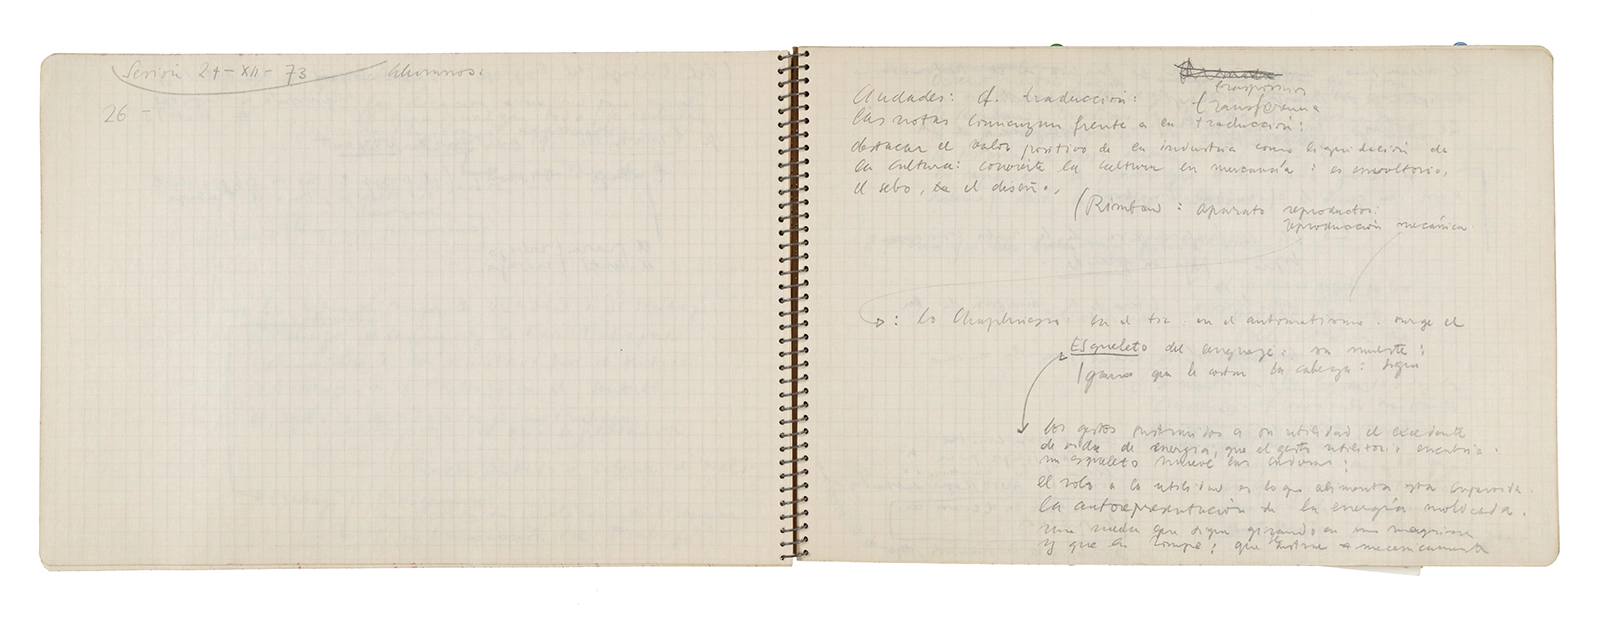 Sesión 24-XII-73 Alumnos:
26 -
traspasos
Ciudades: A. traducción: transferencia
las notas comienzan frente a la traducción:
destacar el valor positivo de la industria como liquidación de
la cultura: convierte la cultura en mercancía: es envoltorio,
el sebo, el diseño,
(Rimbaud: aparato reproductor:
reproducción mecánica
: lo Chaplinesco: en el tic: en el automatismo surge el
Esqueleto del lenguaje: su muerte:
que le cortan la cabeza: sigue
los gestos a su utilidad el excedente
de vida de energía, que el gesto utilitario encubría.
un esqueleto mueve las caderas:
el robo a la utilidad es lo que alimenta esta
la autorepresentación de la energía
una rueda que sigue girando en una maquina
y que la rompe: que mecanicamente